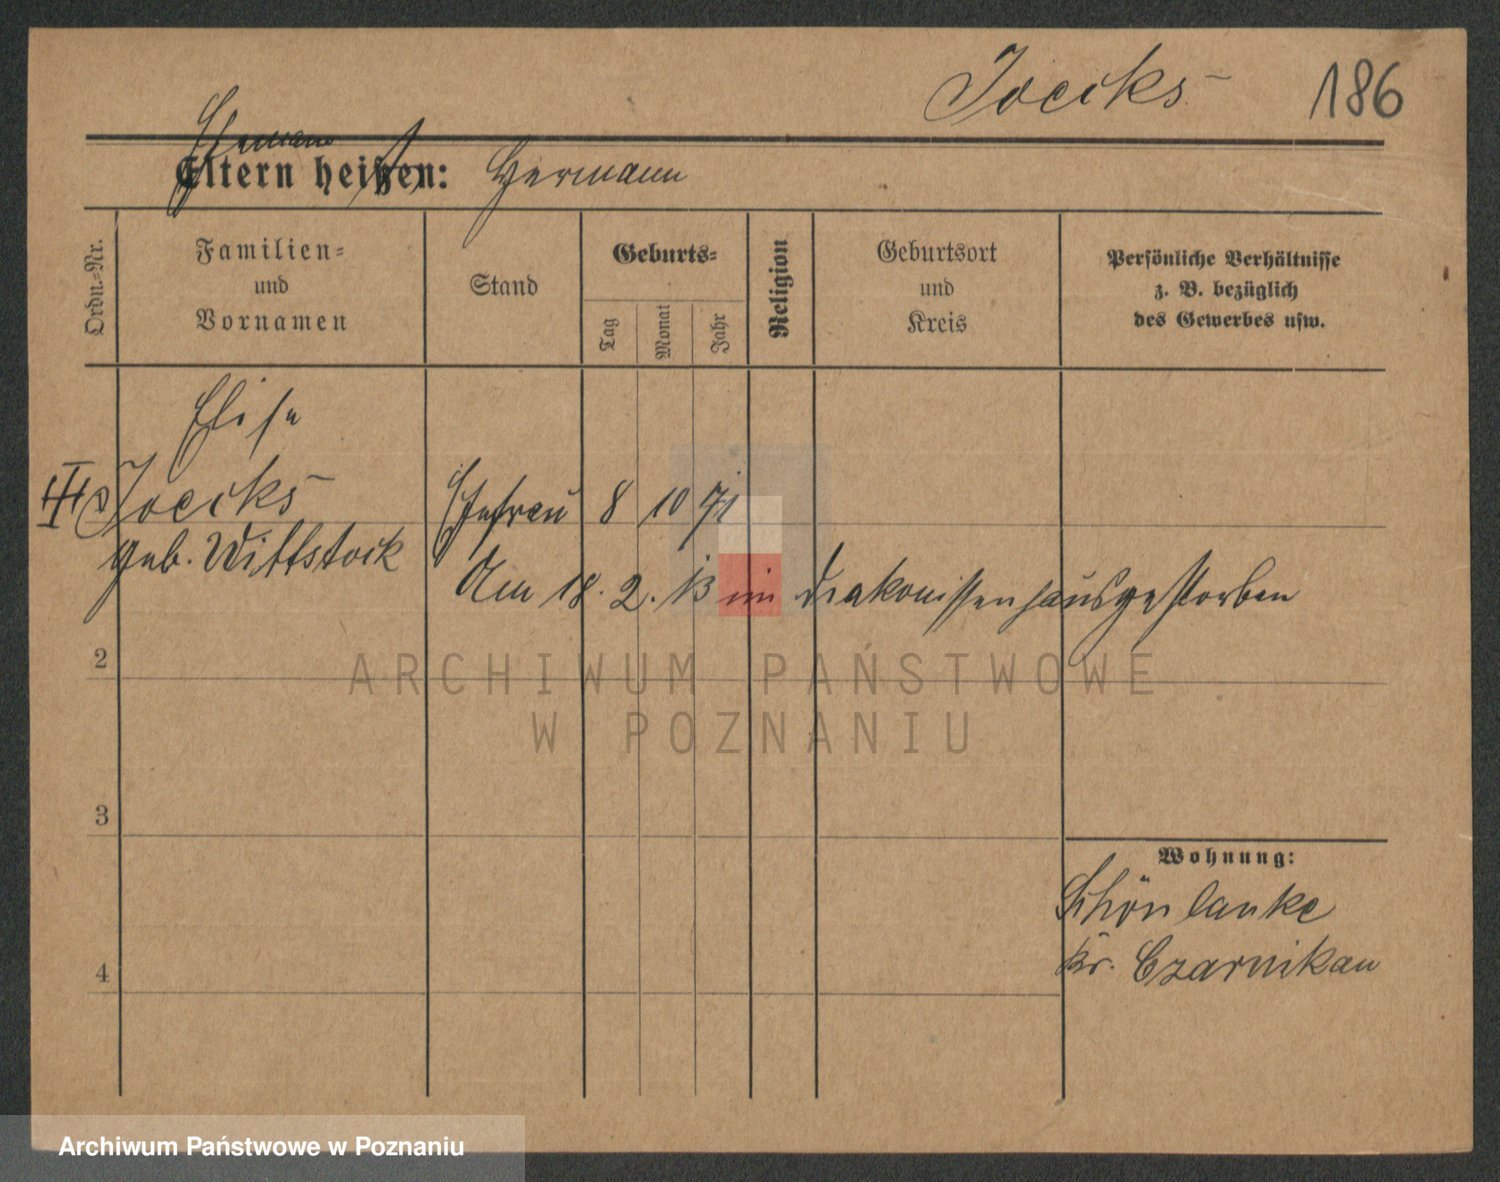 Joecks 186
Ehemann
Eltern heißen: Hermann
Ordn.-Nr.
Familien-
und
Vornamen
Stand
Geburts-
Tag
Monat
Jahr
Religion
Geburtsort
und
Kreis
Persönliche Verhältnisse
z. B. bezüglich
des Gewerbes usw.
Elise
Joecks Ehefrau 8 10 71
geb. Wittstock
Am 18. 2. 13 im Diakonissenhaus gestorben
2
ARCHIWUM PAŃSTWOWE
W POZNANIU
3
Wohnung:
Schönlanke
Kr. Czarnikau
4
Archiwum Państwowe w Poznaniu